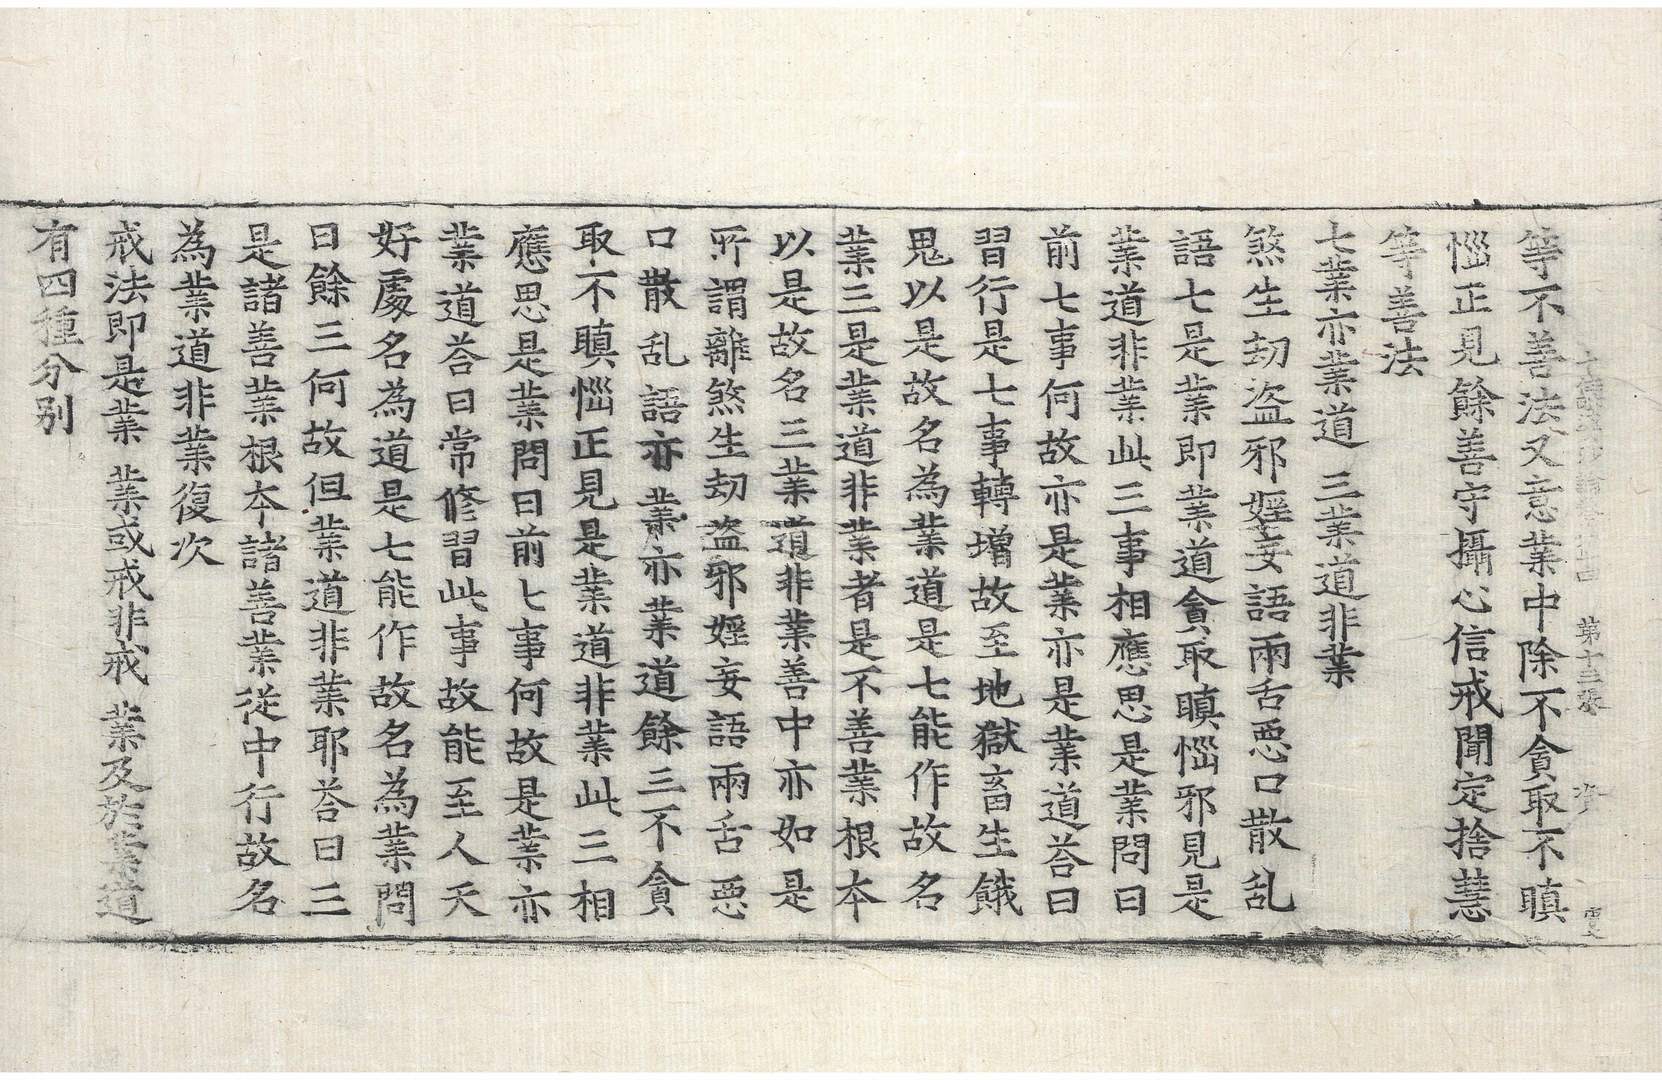 第十三張 資
等不善法又意業中除不貪取不瞋
惱正見餘善守攝心信戒聞定捨慧
等善法
七業亦業道 三業道非業
煞生劫盜邪婬妄語兩舌惡口散乱
語七是業即業道貪取瞋惱邪見是
業道非業此三事相應思是業問曰
前七事何故亦是業亦是業道荅曰
習行是七事轉增故至地獄畜生餓
鬼以是故名為業道是七能作故名
業三是業道非業者是不善業根本
以是故名三業道非業善中亦如是
所謂離煞生劫盜邪婬妄語兩舌惡
口散乱語亦業亦業道餘三不貪
取不瞋惱正見是業道非業此三相
應思是業問曰前七事何故是業亦
業道荅曰常修習此事故能至人天
好處名為道是七能作故名為業問
曰餘三何故但業道非業耶荅曰三
是諸善業根本諸善業從中行故名
為業道非業復次
戒法即是業 業或戒非戒 業及於業道
有四種分別